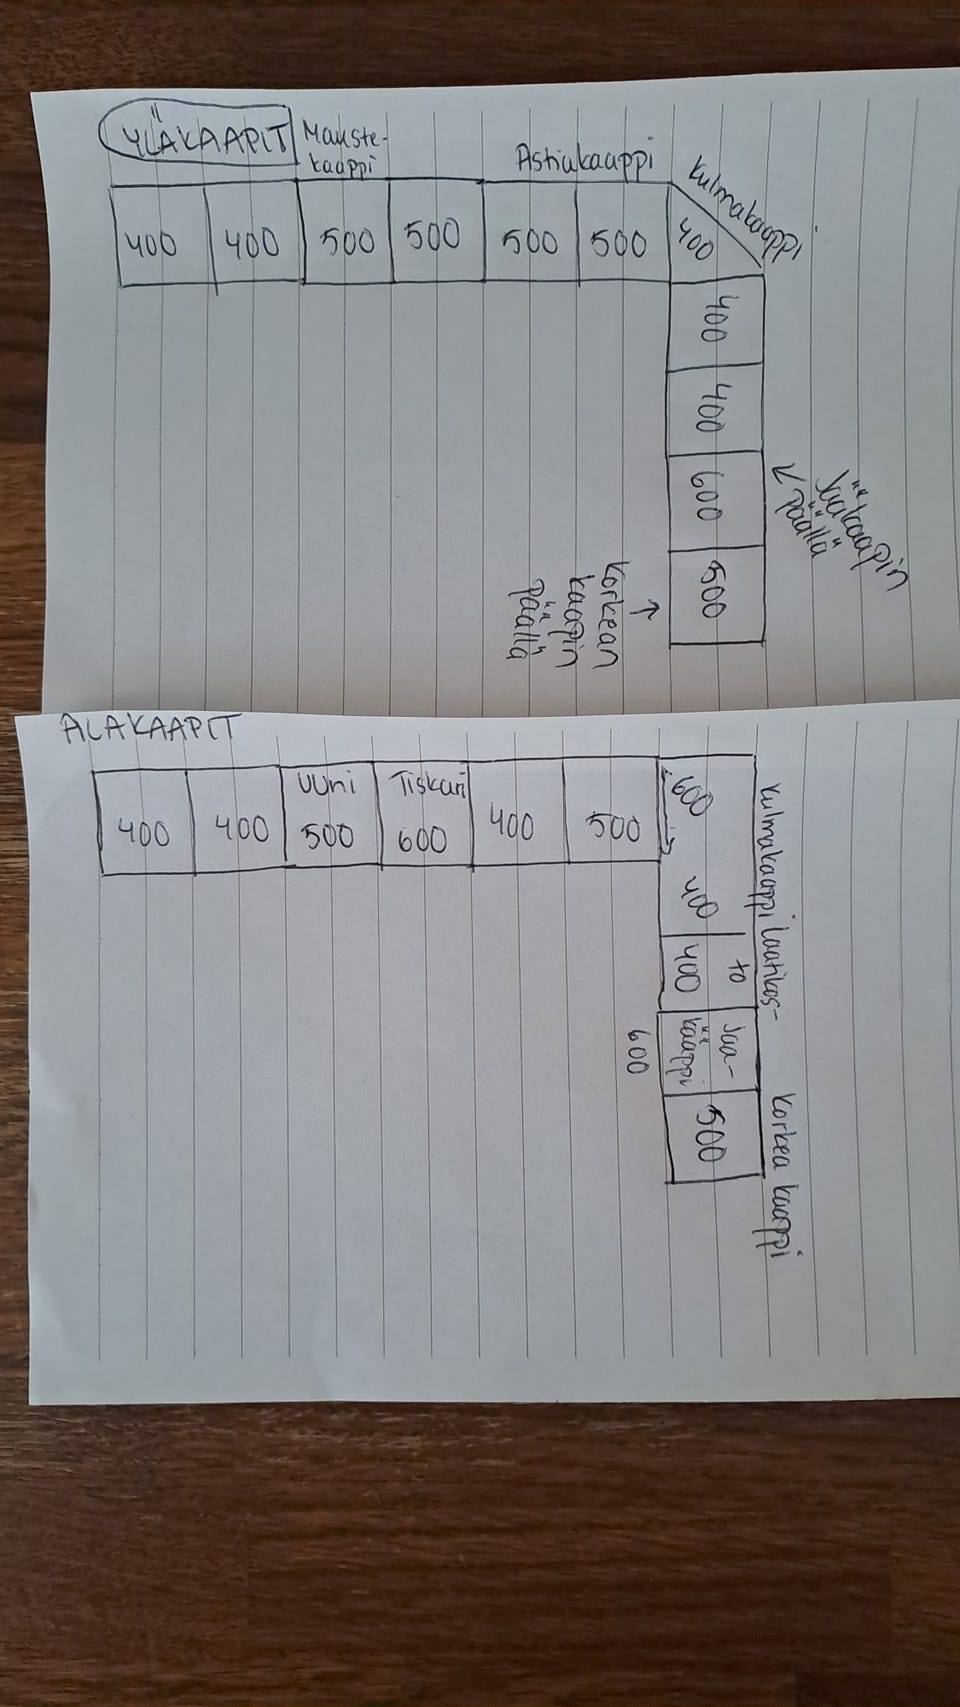 YLÄKAAPIT
Mauste-
kaappi
Astiakaappi
Kulmakaappi
400
400
500
500
500
500
400
400
400
600
500
Jääkaapin
päällä
Korkean
kaapin
päällä
ALAKAAPIT
400
400
Uuni
500
Tiskari
600
400
500
600
400
Kulmakaappi
Laatikos-
to
400
Jää-
kaappi
600
500
Korkea kaappi